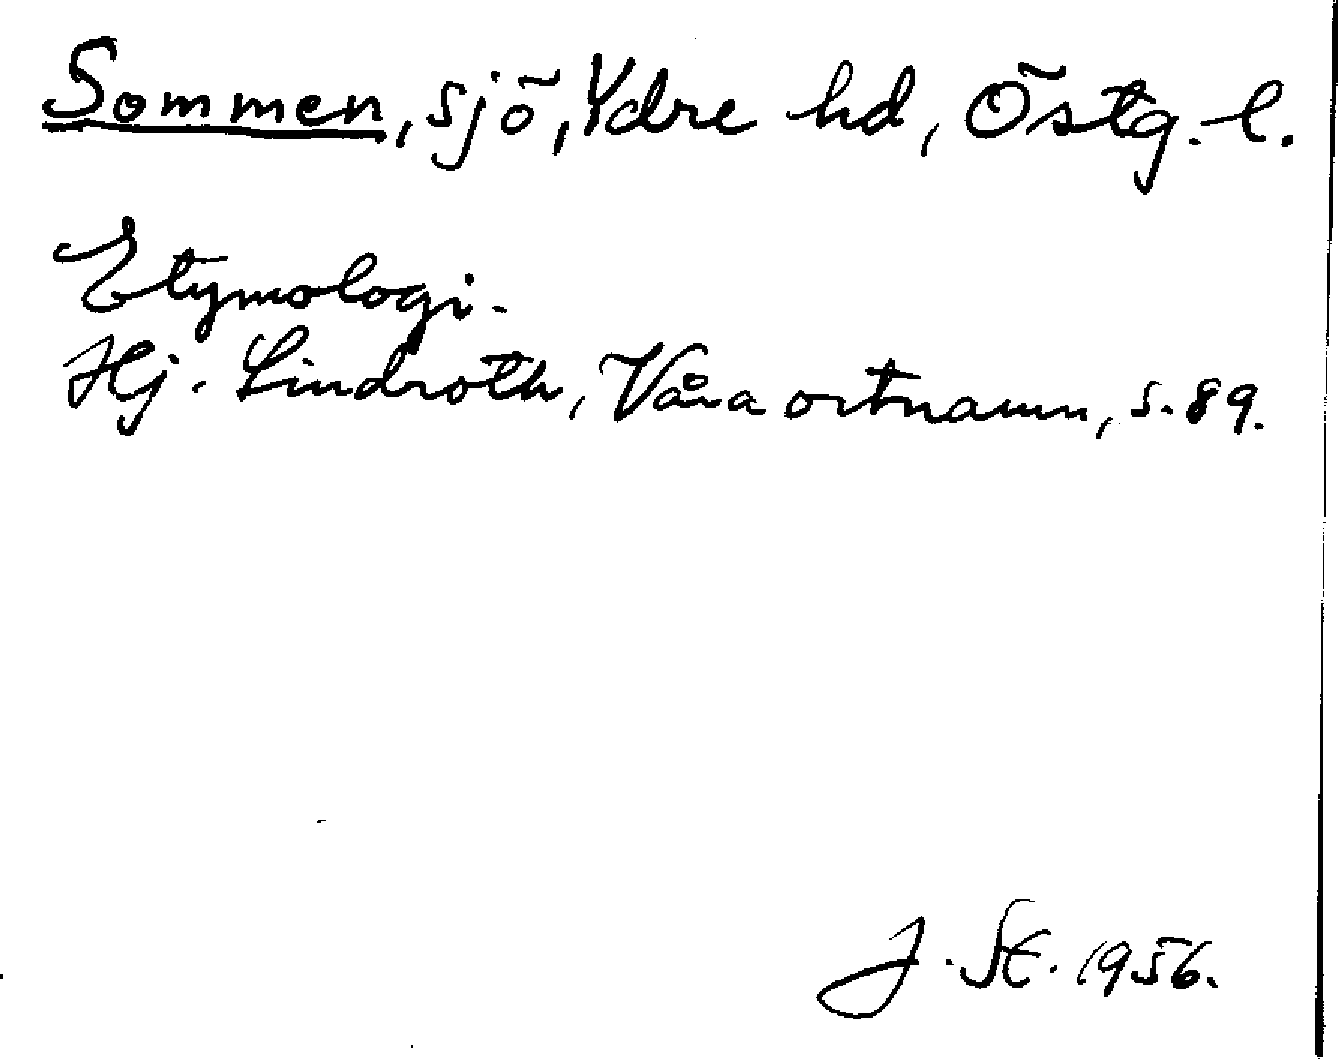 Sommen, sjö, Ydre hd, Östg. l.
Etymologi.
Hj. Lindroth, Våra ortnamn, s. 89.
J. St. 1956.